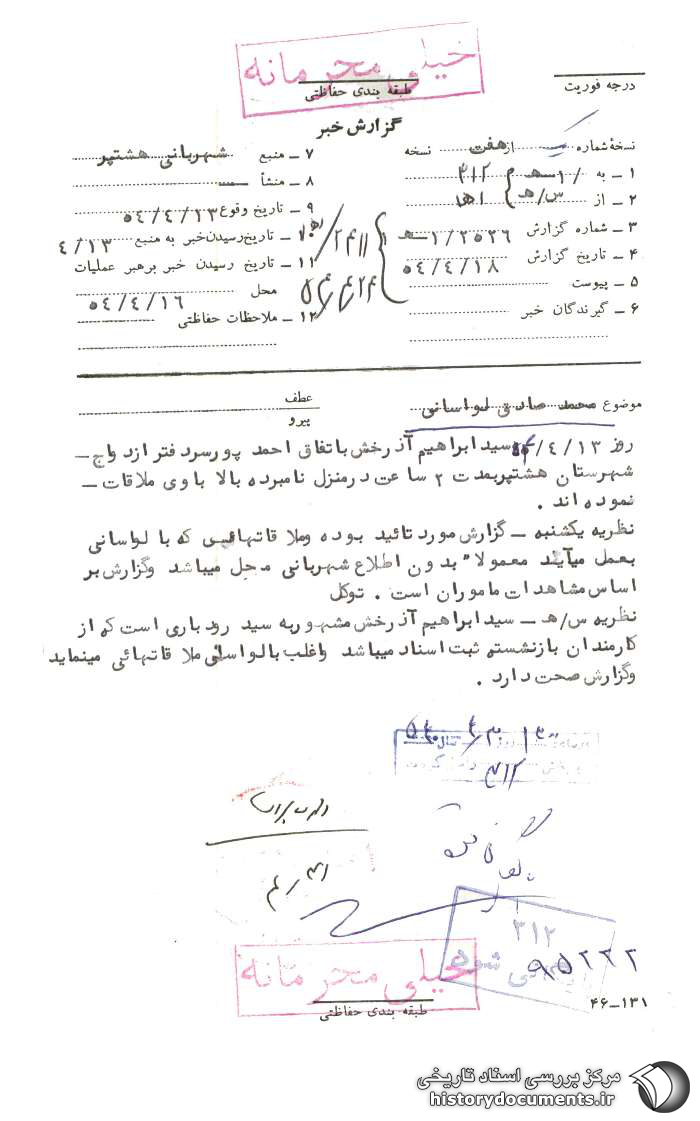 خیلی محرمانه
درجه فوریت
طبقه بندی حفاظتی
گزارش خبر
نسخهٔ شماره از هفت نسخه
۱ ــ به ۳۱۲
۲ ــ از س/هـ
۳ ــ شماره گزارش
۴ ــ تاریخ گزارش ۵۴/۴/۱۸
۵ ــ پیوست
۶ ــ گیرندگان خبر
۷ ــ منبع شهربانی هشتپر
۸ ــ منشأ
۹ ــ تاریخ وقوع ۵۴/۴/۱۳
۱۰ ــ تاریخ رسیدن خبر به منبع ۴/۱۳
۱۱ ــ تاریخ رسیدن خبر برهبر عملیات
محل ۵۴/۴/۱۶
۱۲ ــ ملاحظات حفاظتی
موضوع محمد صادق لواسانی
عطف
پیرو
روز ۵۴/۴/۱۳ سید ابراهیم آذرخش باتفاق احمد پور سردفتر ازدواج ــ
شهرستان هشتپر بمدت ۲ ساعت در منزل نامبرده بالا با وی ملاقات ــ
نموده اند .
نظریه یکشنبه ــ گزارش مورد تائید بوده و ملاقاتهائیی که با لواسانی
بعمل میآیند معمولا" بدون اطلاع شهربانی محل میباشد و گزارش بر
اساس مشاهدات ماموران است . توکل
نظریه س/هـ ــ سید ابراهیم آذرخش مشهور به سید رودباری است که از
کارمندان بازنشسته ثبت اسناد میباشد و اغلب با لواسانی ملاقاتهائی مینماید
و گزارش صحت دارد .
۳۱۲
۳۱۲
۹۵۲۲۲
خیلی محرمانه
طبقه بندی حفاظتی
۴۶ــ۱۳۱
مرکز بررسی اسناد تاریخی
historydocuments.ir